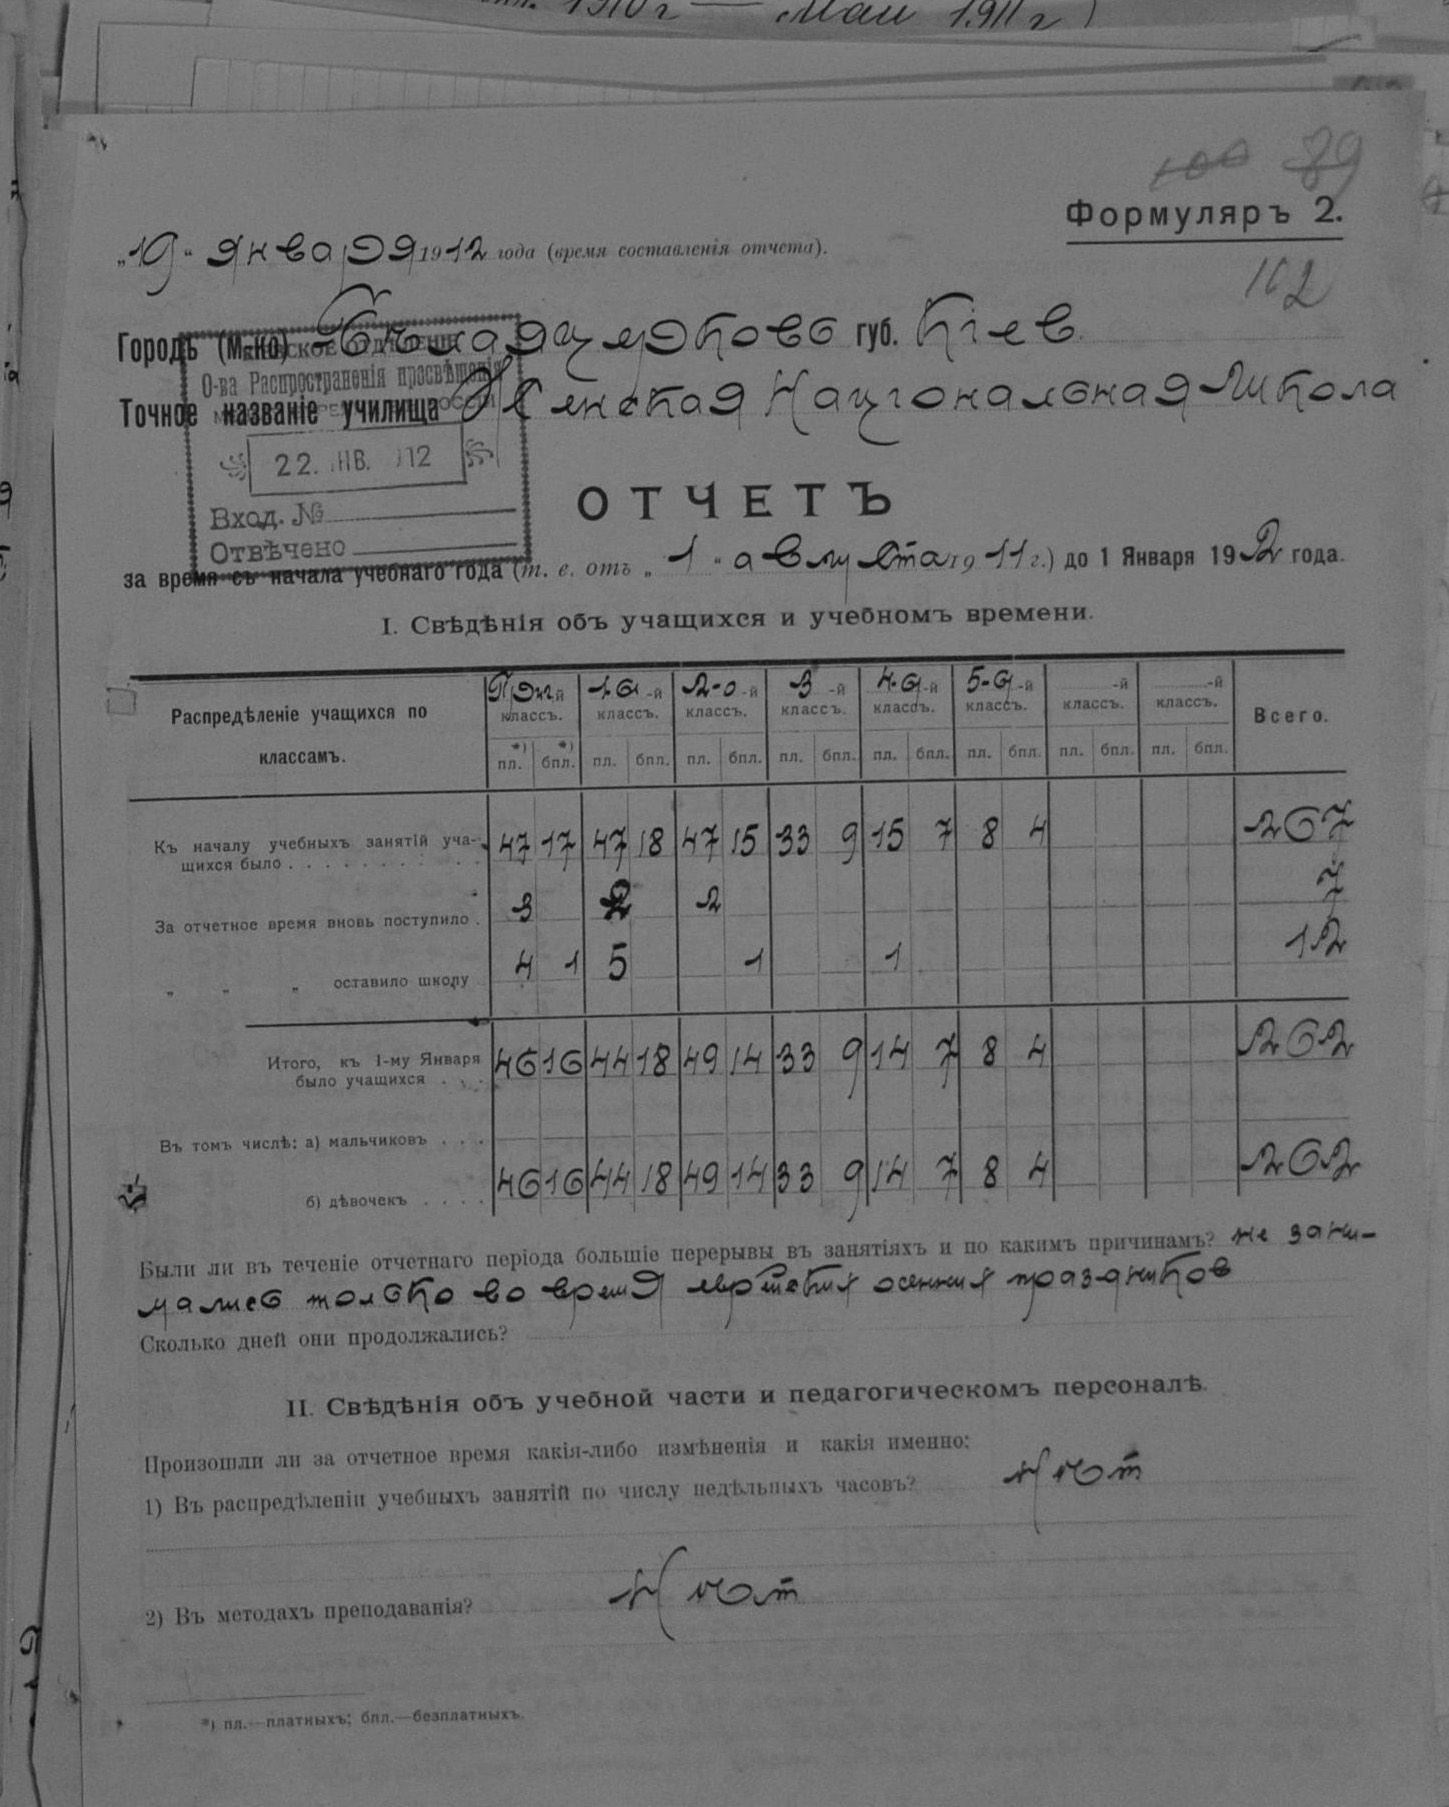 1910 г — Май 1911 г)
100 89
Формуляръ 2.
„19„ января 1912 года (время составленія отчета).
112
Городъ (м-ко) Бѣлая церковь губ. Кіев.
О-ва Распространенія просвѣщенія
Точное названіе училища Женская Национальная школа
22. ЯНВ. 912
ОТЧЕТЪ
Вход. №
Отвѣчено
за время съ начала учебнаго года (т. е. отъ „ 1 „ августа 19 11 г.) до 1 Января 19 12 года.
I. Свѣдѣнія объ учащихся и учебномъ времени.
Распредѣленіе учащихся по классамъ. Приг-й классъ. 1-й -й классъ. 2-о -й классъ. 3 -й классъ. 4-й -й классъ. 5-й -й классъ. -й классъ. -й классъ. Всего.
*) пл. *) бпл. пл. бпл. пл. бпл. пл. бпл. пл. бпл. пл. бпл. пл. бпл. пл. бпл.
Къ началу учебныхъ занятій уча-
щихся было . . . . . . . . . 47 17 47 18 47 15 33 9 15 7 8 4 267
За отчетное время вновь поступило . 3 2 2 7
„ „ „ оставило школу 4 1 5 1 1 12
Итого, къ 1-му Января
было учащихся . . . 46 16 44 18 49 14 33 9 14 7 8 4 262
Въ томъ числѣ: а) мальчиковъ . . .
б) дѣвочекъ . . . . 46 16 44 18 49 14 33 9 14 7 8 4 262
Были ли въ теченіе отчетнаго періода большіе перерывы въ занятіяхъ и по какимъ причинамъ? не зани-
мались только во время еврейских осенних праздников
Сколько дней они продолжались?
II. Свѣдѣнія объ учебной части и педагогическомъ персоналѣ.
Произошли ли за отчетное время какія-либо измѣненія и какія именно:
1) Въ распредѣленіи учебныхъ занятій по числу недѣльныхъ часовъ? Нѣт
2) Въ методахъ преподаванія? Нѣт
*) пл.—платныхъ; бпл.—безплатныхъ.